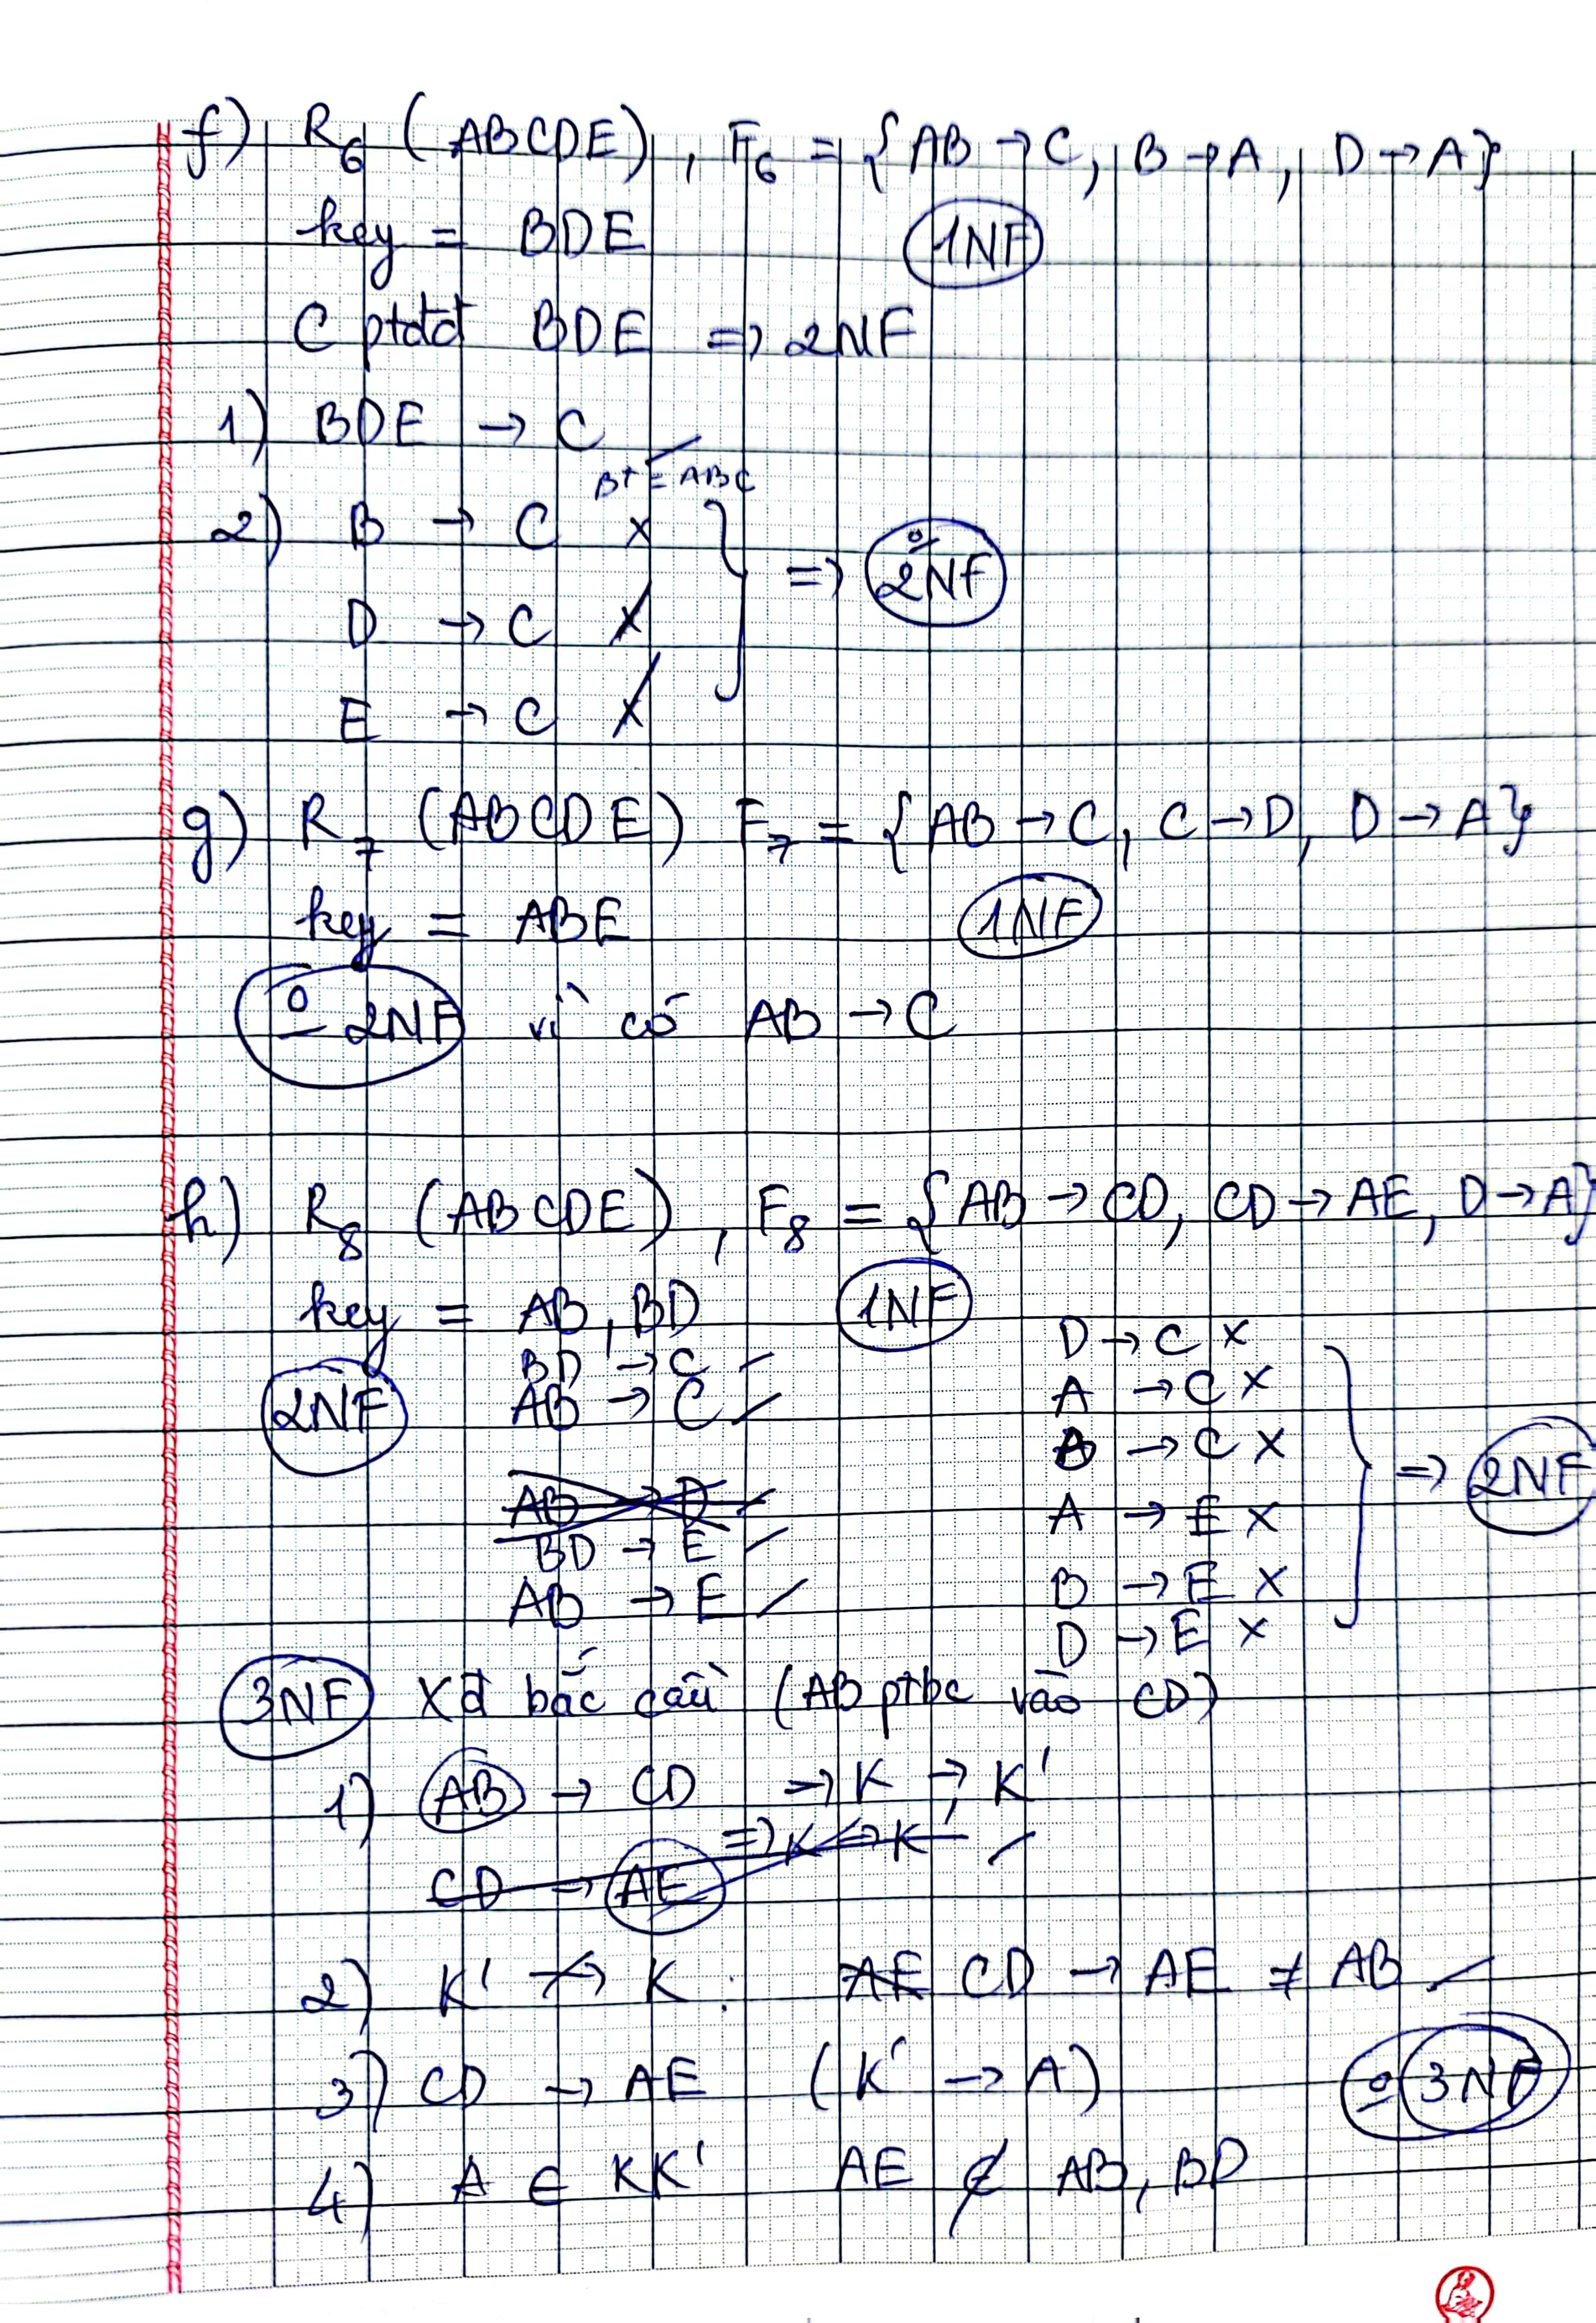 f) R6 (ABCDE), F6 = {AB → C, B → A, D → A}
key = BDE 1NF
C ptđđ BDE => 2NF
1) BDE → C ✓
B+ = ABC
2) B → C x
D → C x
E → C x
=> o 2NF
g) R7 (ABCDE) F7 = {AB → C, C → D, D → A}
key = ABE 1NF
o 2NF vì có AB → C
h) R8 (ABCDE), F8 = {AB → CD, CD → AE, D → A}
key = AB, BD 1NF
BD → C ✓
2NF AB → C ✓
AB → D ✓
BD → E ✓
AB → E ✓
D → C x
A → C x
B → C x
A → E x
B → E x
D → E x
=> 2NF
3NF Xđ bắc cầu (AB ptbc vào CD)
1) AB → CD => K → K'
CD → AE => K ↔ K' ✓
2) K' ↛ K : AE CD → AE ≠ AB ✓
3) CD → AE (K' → A) o 3NF
4) A ∈ KK' AE ∉ AB, BD